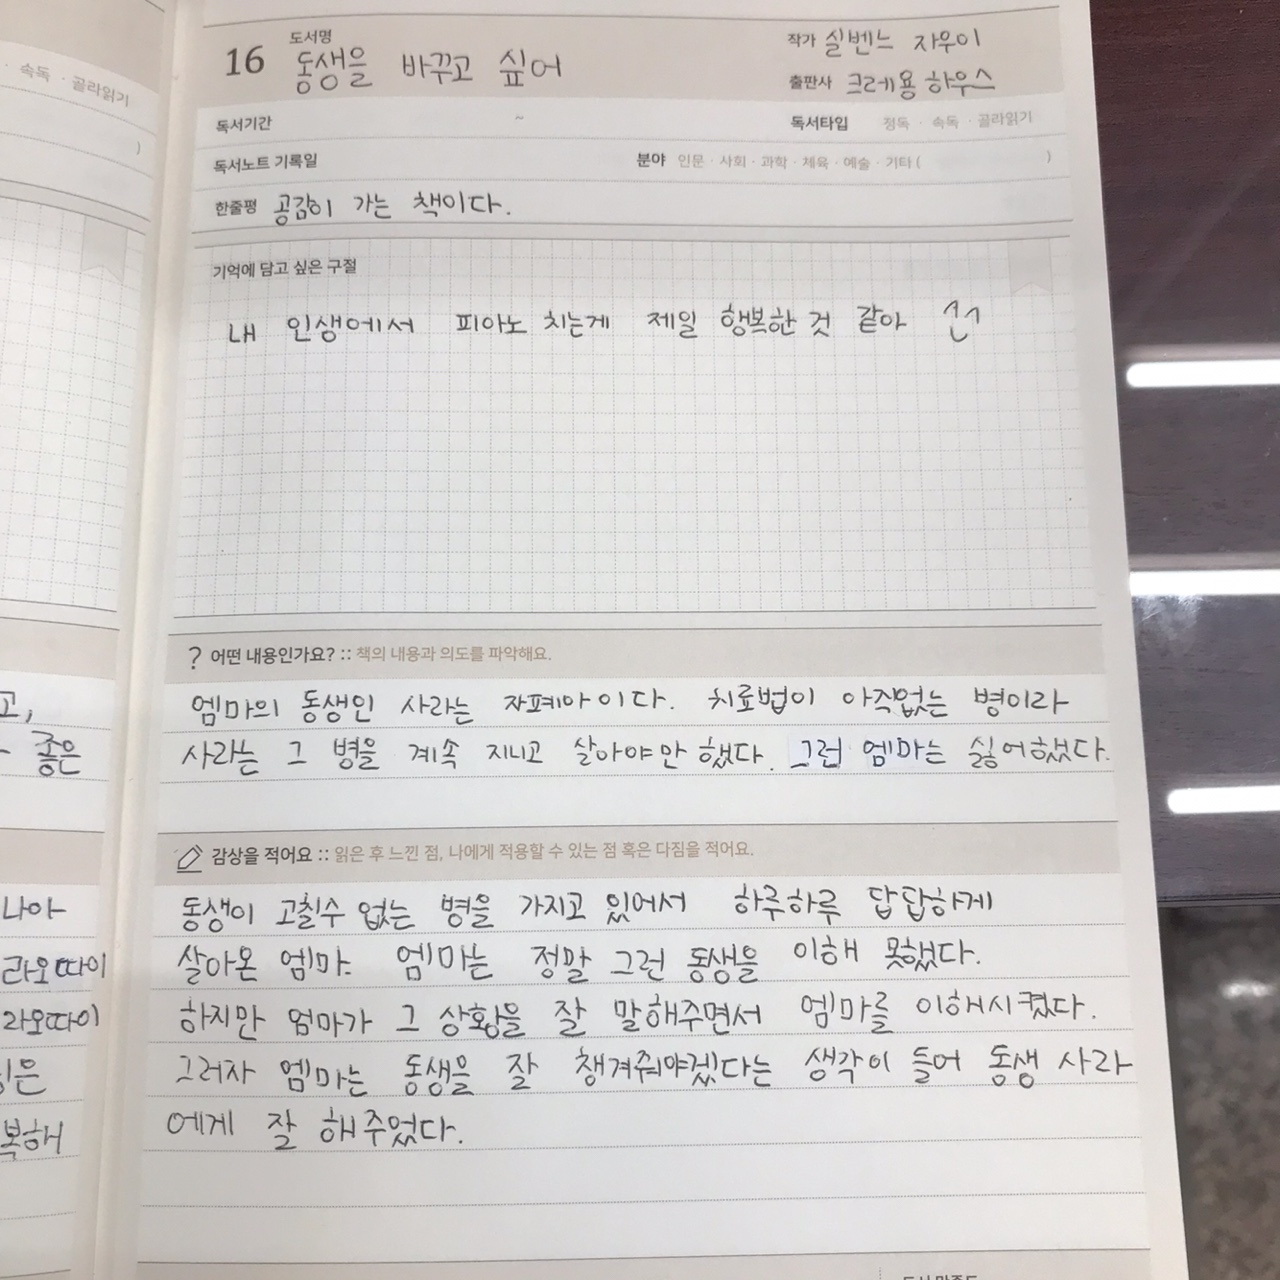 속독 · 골라읽기
)
고,
좋은
나아
라오따이
라오따이
복해
16 도서명 동생을 바꾸고 싶어 작가 실벤느 자우이
출판사 크레용하우스
독서기간 ~ 독서타입 정독 · 속독 · 골라읽기
독서노트 기록일 분야 인문 · 사회 · 과학 · 체육 · 예술 · 기타 ( )
한줄평 공감이 가는 책이다.
기억에 담고 싶은 구절
내 인생에서 피아노 치는게 제일 행복한 것 같아
? 어떤 내용인가요? :: 책의 내용과 의도를 파악해요.
엠마의 동생인 사라는 자폐아이다. 치료법이 아직없는 병이라
사라는 그 병을 계속 지니고 살아야만 했다. 그런 엠마는 싫어했다.
감상을 적어요 :: 읽은 후 느낀 점, 나에게 적용할 수 있는 점 혹은 다짐을 적어요.
동생이 고칠수 없는 병을 가지고 있어서 하루하루 답답하게
살아온 엠마. 엠마는 정말 그런 동생을 이해 못했다.
하지만 엄마가 그 상황을 잘 말해주면서 엠마를 이해시켰다.
그러자 엠마는 동생을 잘 챙겨줘야겠다는 생각이 들어 동생 사라
에게 잘 해주었다.